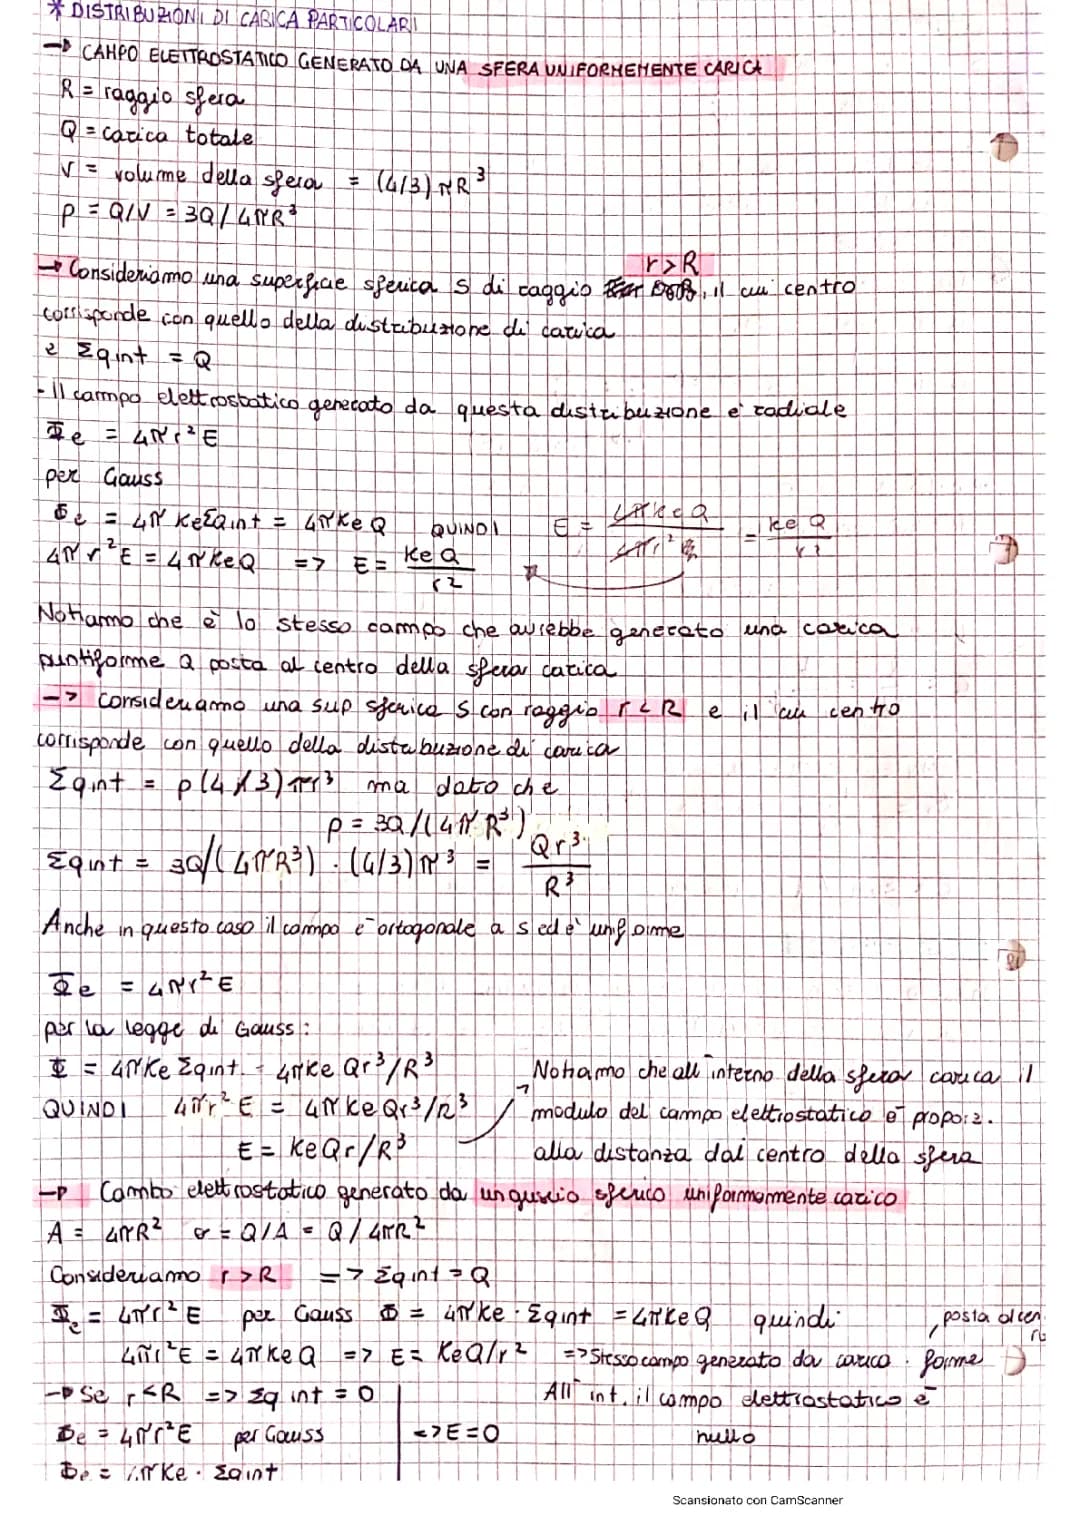 * DISTRIBUZIONI DI CARICA PARTICOLARI
→ CAMPO ELETTROSTATICO GENERATO DA UNA SFERA UNIFORMEMENTE CARICA
R = raggio sfera
Q = carica totale
V = volume della sfera = (4/3)πR³
ρ = Q/V = 3Q/4πR³
→ Consideriamo una superficie sferica S di raggio r>R, il cui centro
corrisponde con quello della distribuzione di carica
e Σqint = Q
- Il campo elettrostatico generato da questa distribuzione è radiale
Φe = 4πr²E
per Gauss
Φe = 4π KeΣqint = 4πKe Q QUINDI E = 4πKeQ / 4πr² = Ke Q / r²
4πr²E = 4πKeQ => E = Ke Q / r²
Notiamo che è lo stesso campo che avrebbe generato una carica
puntiforme Q posta al centro della sfera carica
-> Consideriamo una sup sferica S con raggio r<R e il cui centro
corrisponde con quello della distribuzione di carica
Σqint = ρ(4/3)πr³ ma dato che
ρ = 3Q/(4πR³)
Σqint = 3Q/(4πR³) · (4/3)π³ = Qr³ / R³
Anche in questo caso il campo è ortogonale a S ed è uniforme
Φe = 4πr²E
per la legge di Gauss:
Φ = 4πKe Σqint = 4πKe Qr³/R³
QUINDI 4πr²E = 4πKeQr³/R³
E = KeQr/R³
Notiamo che all'interno della sfera carica il
modulo del campo elettrostatico è proporz.
alla distanza dal centro della sfera
→ Cambo elettrostatico generato da un guscio sferico uniformemente carico
A = 4πR² σ = Q/A = Q/4πR²
Consideriamo r>R => Σqint = Q
Φe = 4πr²E per Gauss Φ = 4πKe · Σqint = 4πKeQ quindi
4πr²E = 4πKeQ => E = KeQ/r² => Stesso campo generato da carica forme, posta al cen
→ Se r<R => Σq int = 0
Φe = 4πr²E per Gauss => E=0
Φe = 4πKe · Σqint
All' int. il campo elettrostatico è
nullo
Scansionato con CamScanner